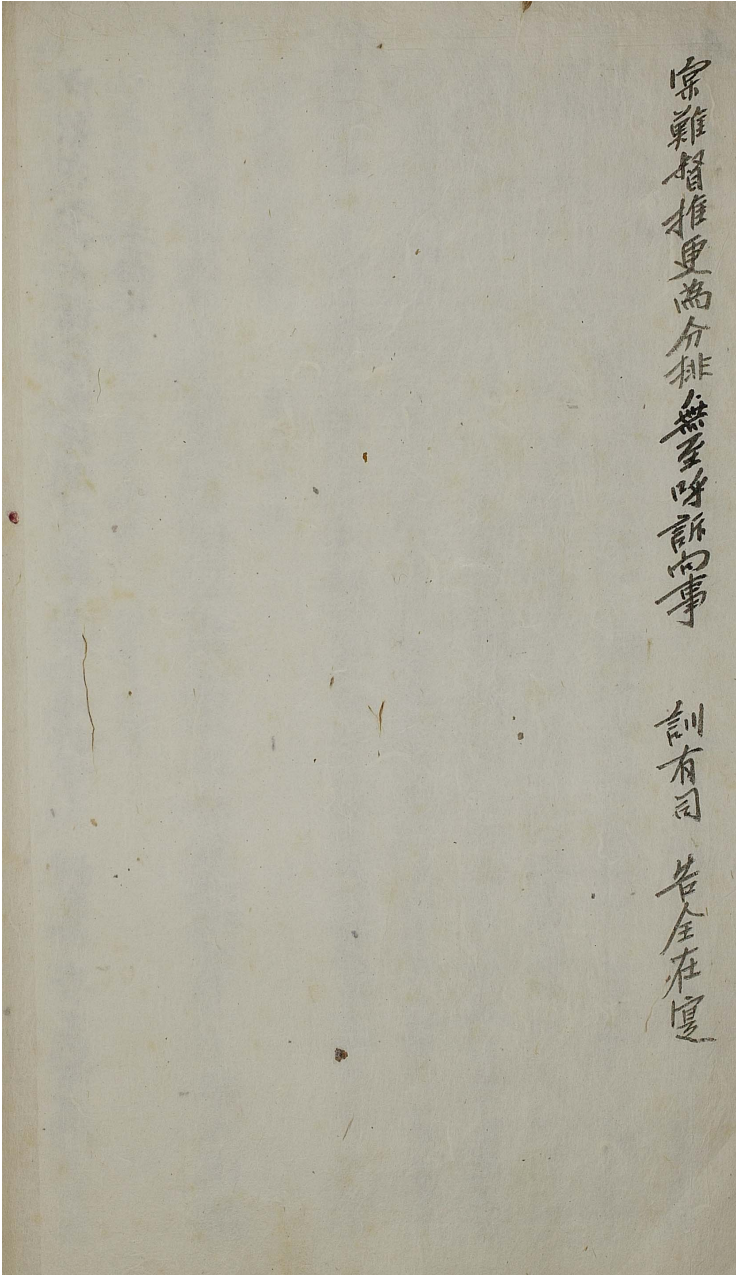 實難督推更爲分排無至呼訴向事　　訓有司　告仝在寔